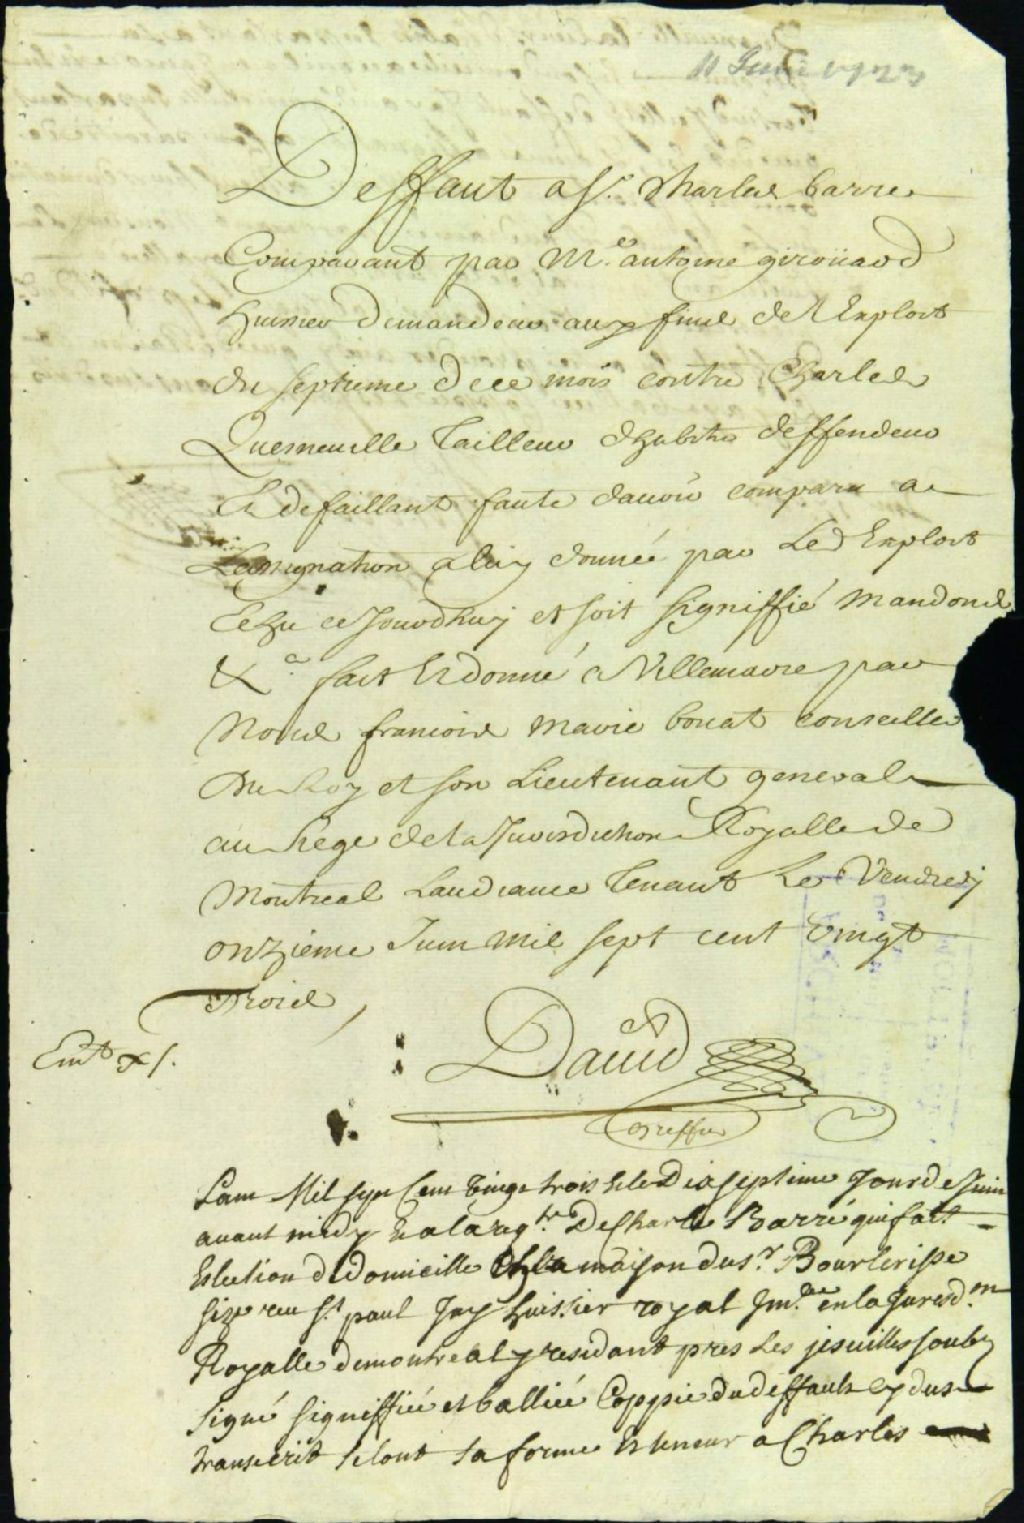 11 Juin 1723
Deffaut a Sr. Charles barre
Comparant par Me. antoine giroüard
huissier demandeur aux fins de l Exploit
du septieme de ce mois contre Charles
Quesneuille Tailleur dhabits deffendeur
Et defaillant faute dauoir comparu a
Lassignation a luy donneé par Led Exploit
Echu ce Jourdhuy et soit signiffié Mandons
&a. fait Et donné a Villemarie par
Nous francois Marie bouat conseiller
du Roy et son Lieutenant general
au siege de la Jurisdiction Royalle de
Montreal Laudiance Tenant Le Vendredy
onzieme Juin mil sept cent Vingt
Trois
Daûid
Greffier
Lan Mil sept Cent Vingt trois Et le Dixseptime Jour de Juin
auant midy Et a la reqte. De Charle Barré qui fait
Eslection de domicille En la maison du sr. Bourlerisse
size rue St. paul Jay huissier royal Jm. en la Juresdon
Royalle de montreal y residant pres Les jesuittes soub
signé signiffiée et balliée Coppie du deffault cy dus
transcrit selont sa forme Et teneur a Charles